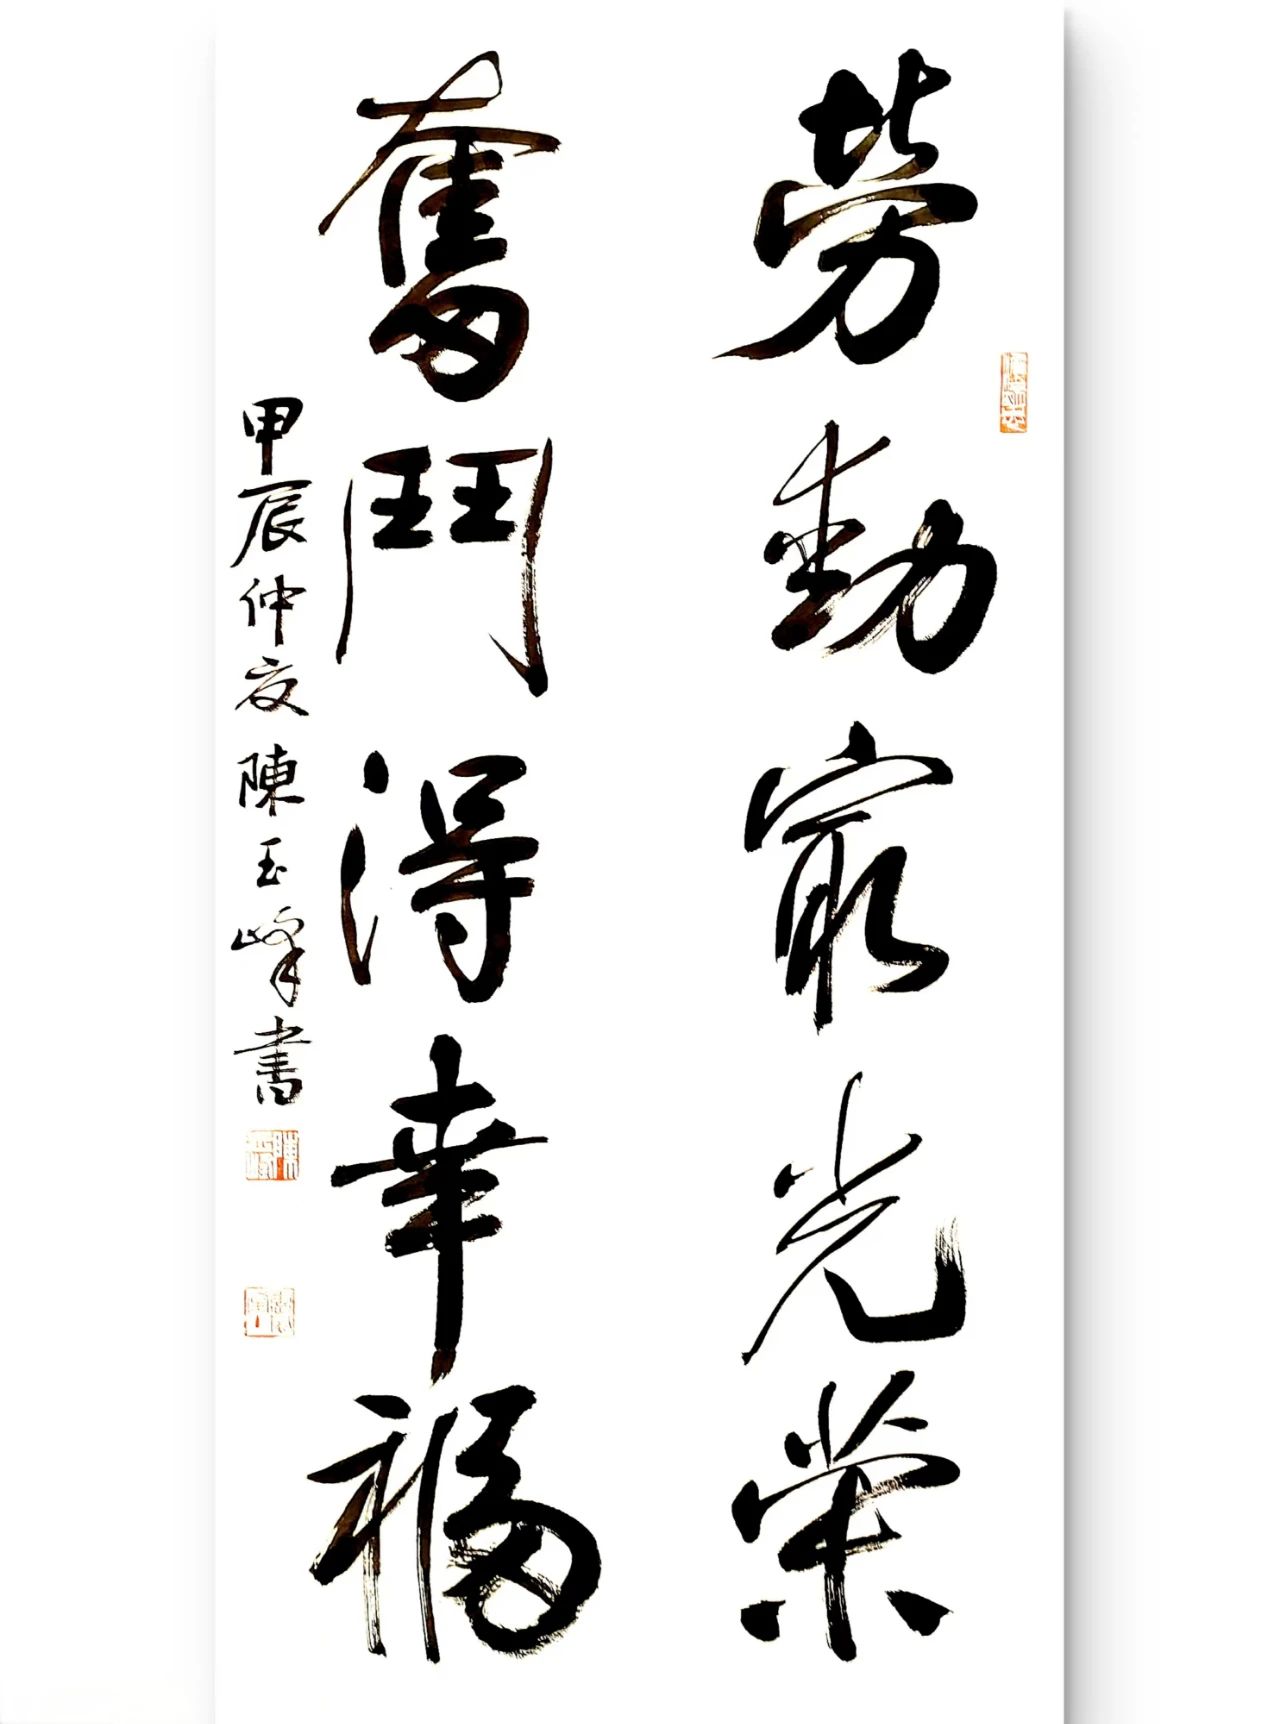 勞動最光榮
奮鬥得幸福
甲辰仲夏陳玉峰書